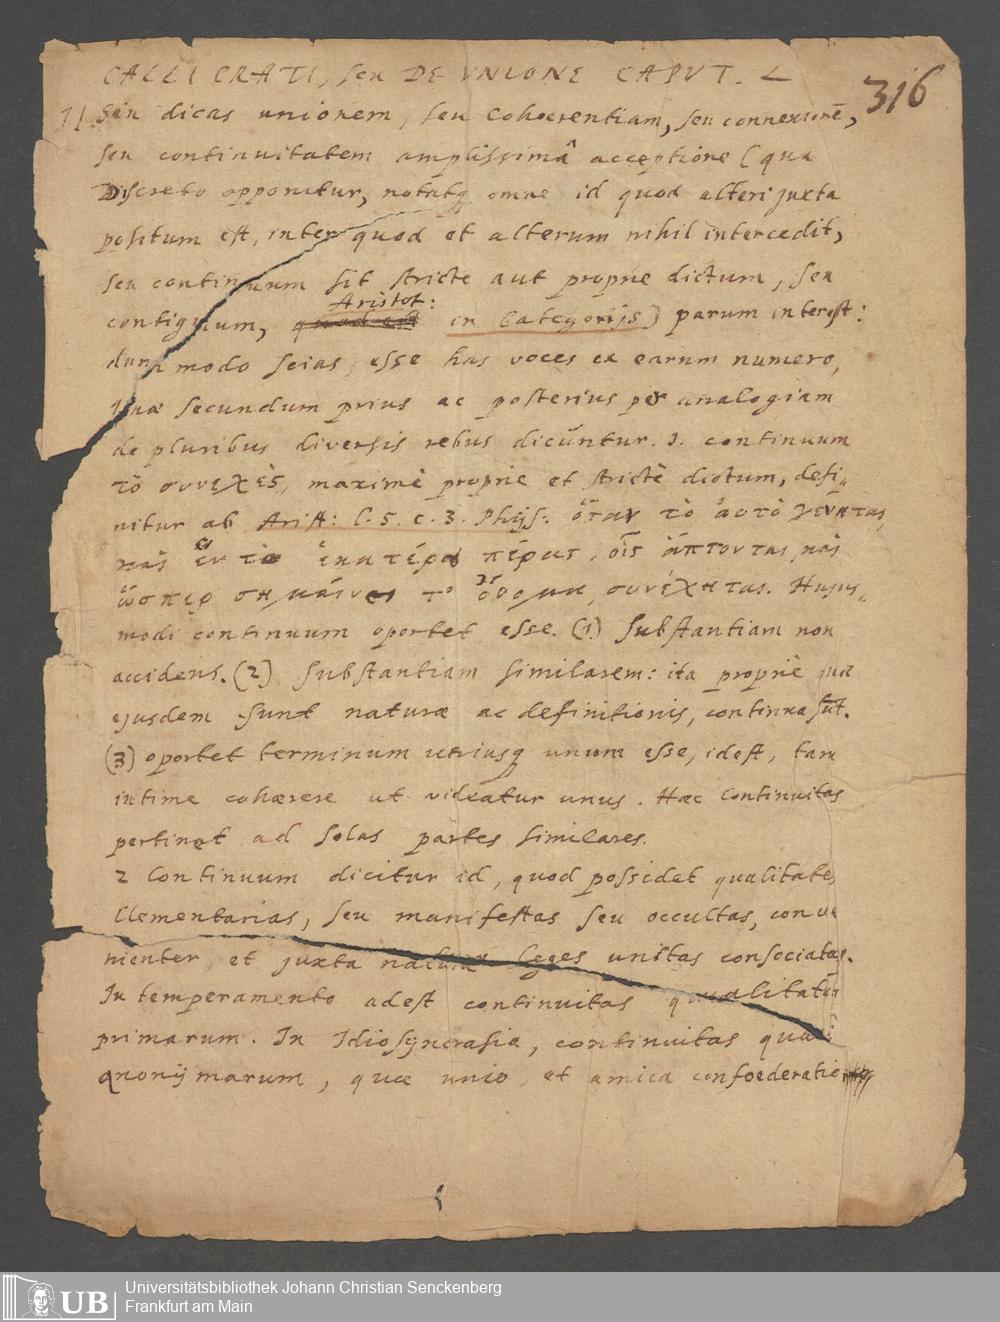 CALLICRATI, seu DE VNIONE CAPUT. L
316
1) Seu dicas unionem, seu Cohoerentiam, seu connexionē,
seu continuitatem amplissimâ acceptione (qua
Discreto opponitur, notatq omne id quod alteri juxta
positum est, inter quod et alterum nihil intercedit,
seu continuum sit stricte aut proprie dictum, seu
Aristot:
contiguum, in Categorijs) parum interest:
dum modo scias, esse has voces ex earum numero,
quæ secundum prius ac posterius per analogiam
de pluribus diversis rebus dicūntur. 1. continuum
τὸ συνεχὲς, maximè proprie et strictè dictum, defi„
nitur ab Arist: l. 5. c. 3. Phijs. ὅταν τὸ ἀυτὸ γένηται
καὶ ἓν τὸ ἑκατέρου πέρας, οἷς ἅπτονται, καὶ
ὥσπερ σημαίνει τὸ συνέχηται. Hujus„
modi continuum oportet esse. (1) Substantiam non
accidens. (2) Substantiam similarem: ita propriè quæ
ejusdem sunt naturæ ac definitionis, continua sūt.
(3) oportet terminum utriusq unum esse, idest, tam
intime cohærere ut videatur unus. Hæc Continuitas
pertinet ad solas partes similares.
2 Continuum dicitur id, quod possidet qualitates
Elementarias, seu manifestas seu occultas, conve
nienter, et juxta naturæ leges unitas consociatas.
In temperamento adest continuitas qualitatū
primarum. In Idiosyncrasia, continuitas quali
anonijmarum, quæ unio, et amica confoederatio